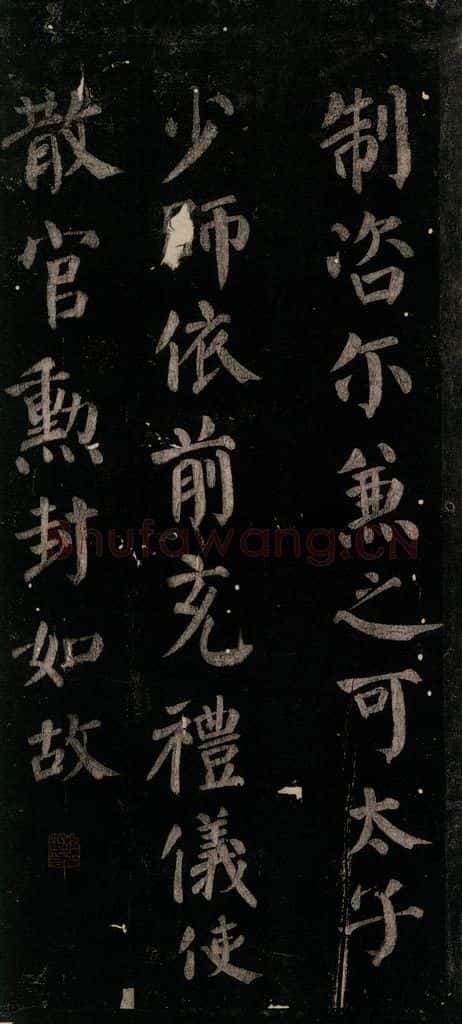 制咨尔兼之可太子
少師依前充禮儀使
散官勳封如故
Shufawang.CN